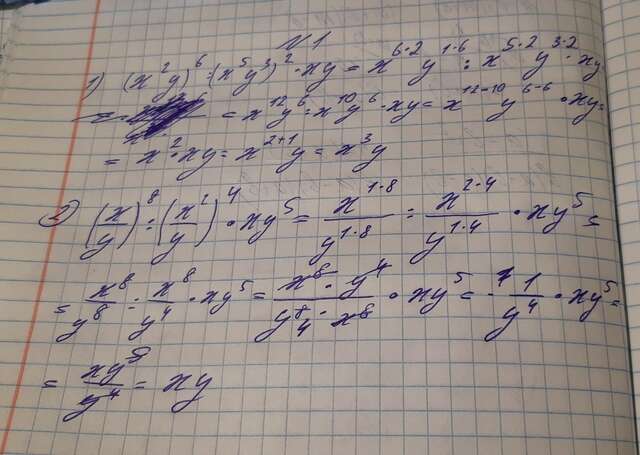 №1
1) (x²y)⁶ : (x⁵y³)² · xy = x⁶·² y¹·⁶ : x⁵·² y³·² · xy
= = x¹² y⁶ : x¹⁰ y⁶ · xy = x¹²⁻¹⁰ y⁶⁻⁶ · xy =
= x² · xy = x²⁺¹ y = x³y
2) (x/y)⁸ : (x²/y)⁴ · xy⁵ = x¹·⁸/y¹·⁸ : x²·⁴/y¹·⁴ · xy⁵ =
= x⁸/y⁸ : x⁸/y⁴ · xy⁵ = x⁸ · y⁴/y⁸ · x⁸ · xy⁵ = 1/y⁴ · xy⁵ =
= xy⁵/y⁴ = xy